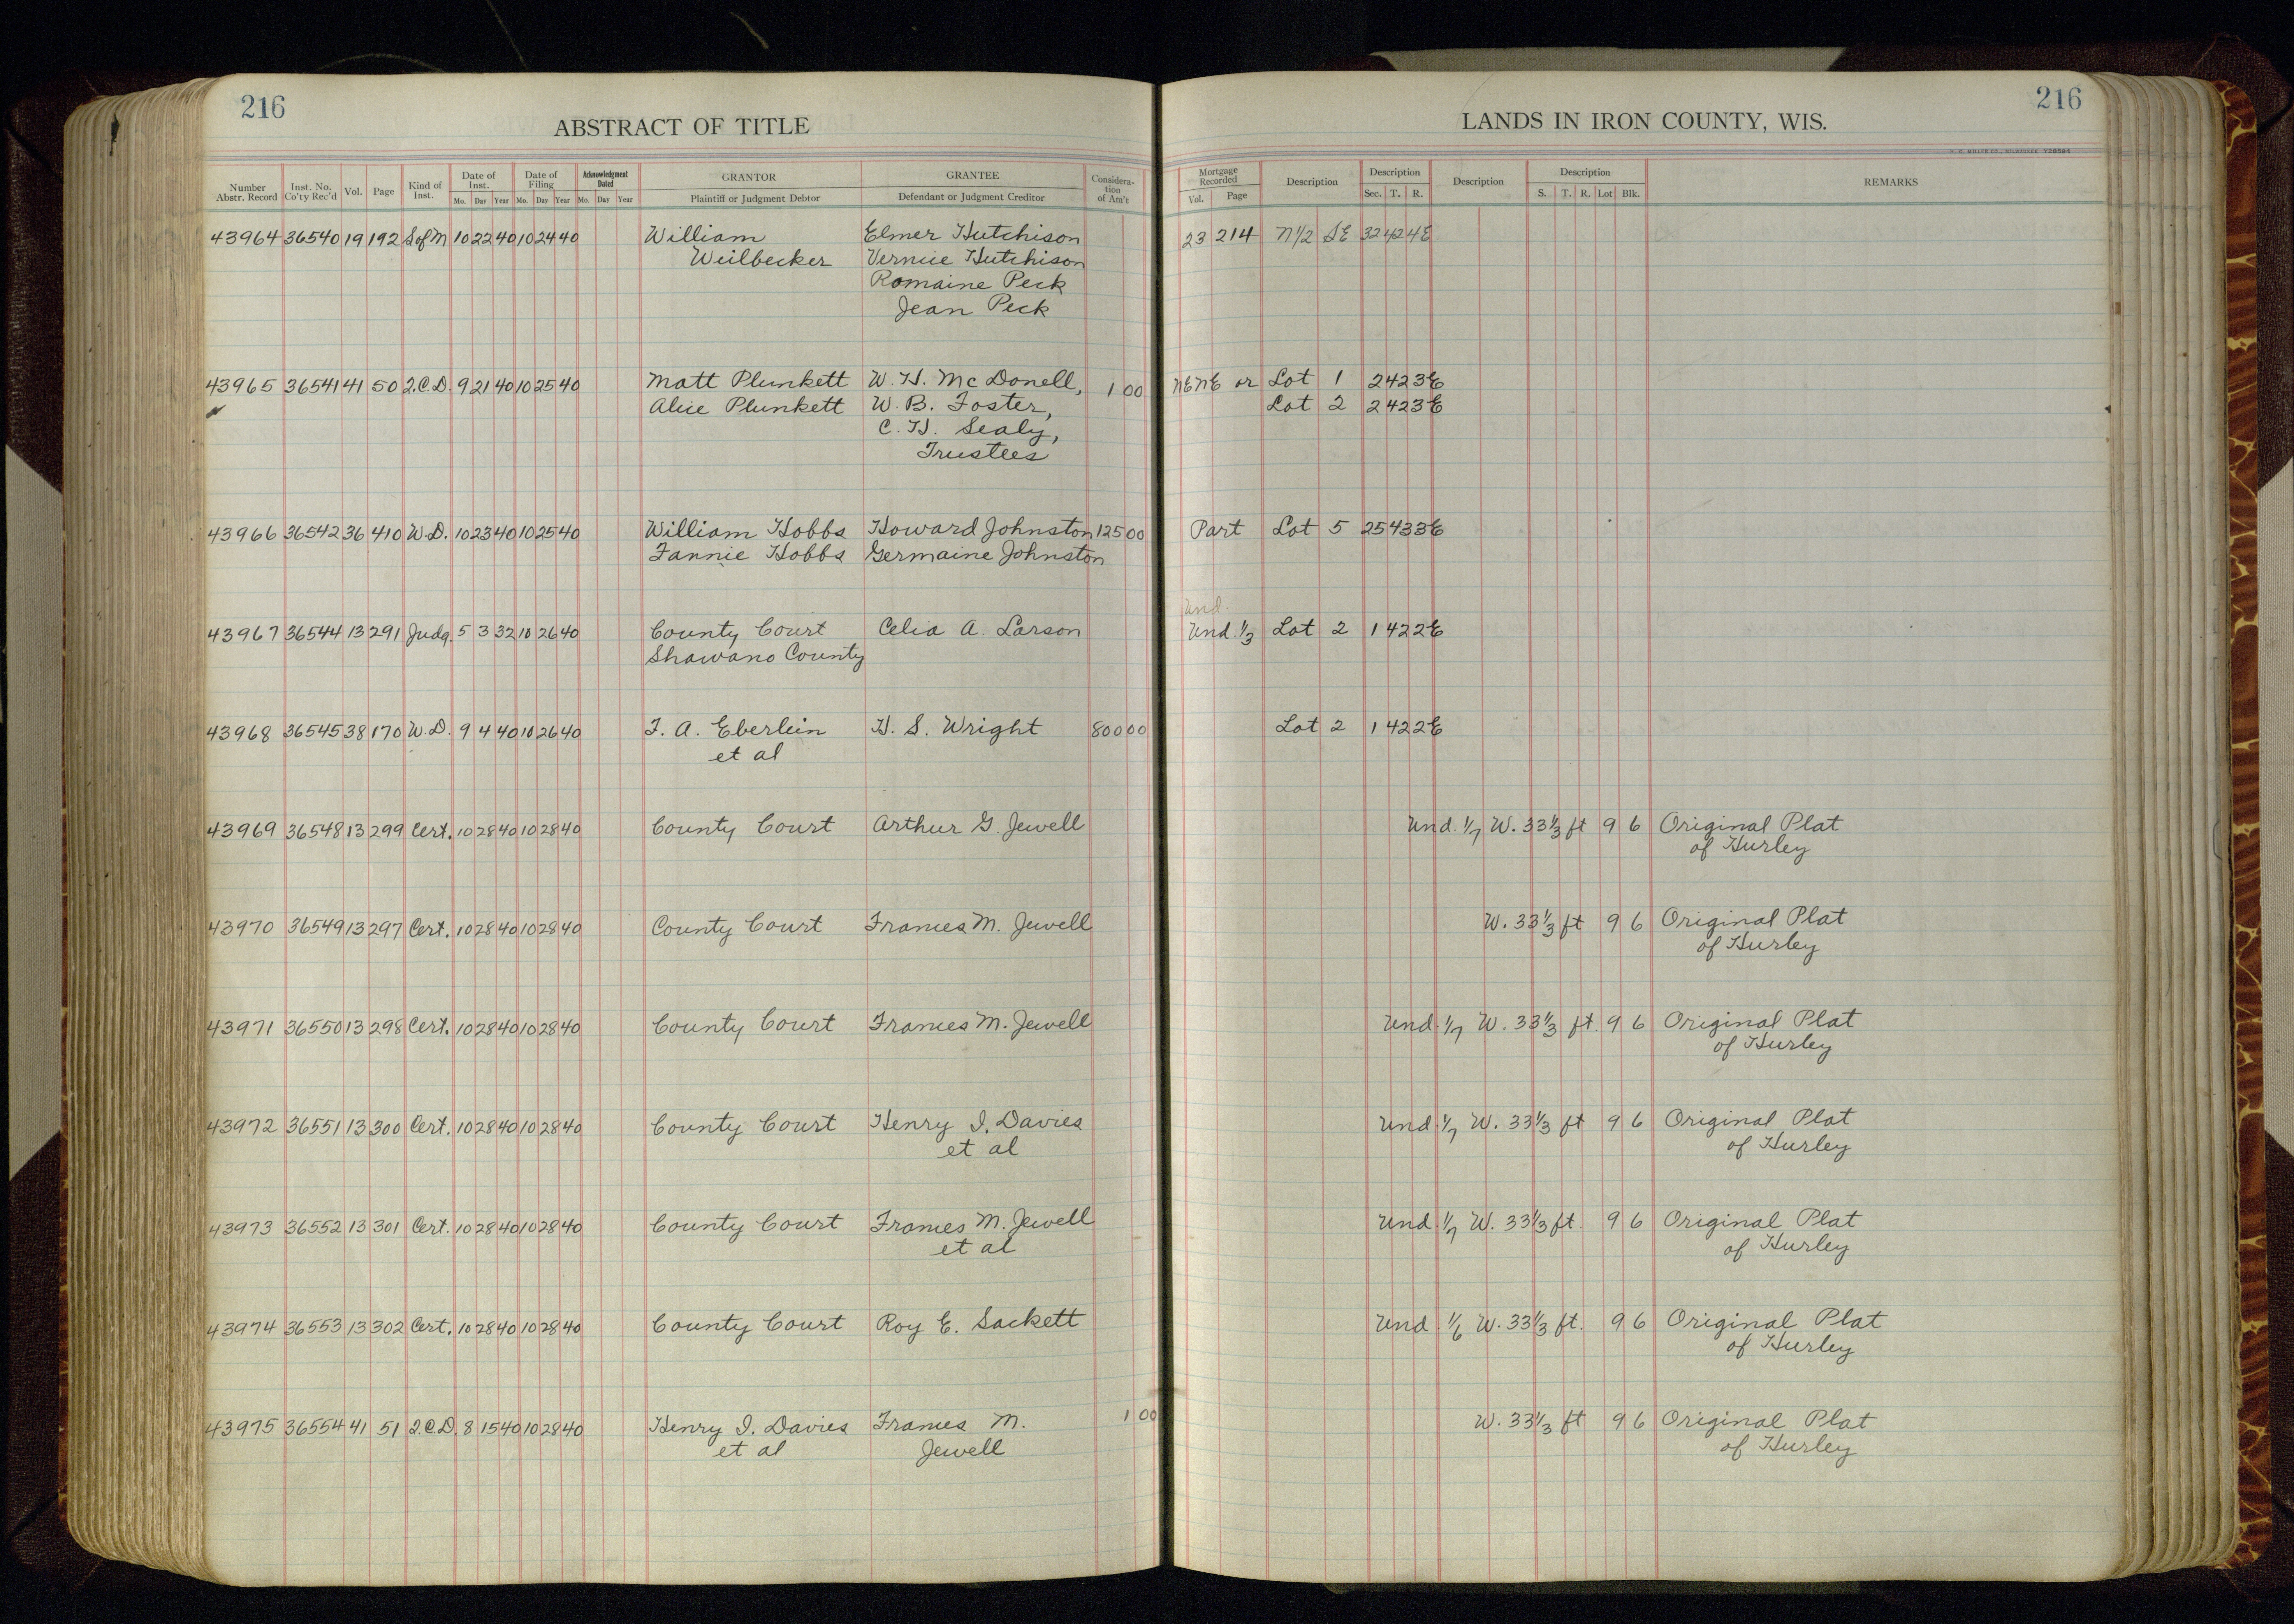 216
216
ABSTRACT OF TITLE
LANDS IN IRON COUNTY, WIS.
Number Abstr. Record Inst. No. Co'ty Rec'd Vol. Page Kind of Inst. Date of Inst. Mo. Day Year Date of Filing Mo. Day Year Acknowledgment Dated Mo. Day Year GRANTOR Plaintiff or Judgment Debtor GRANTEE Defendant or Judgment Creditor Considera- tion of Am't Mortgage Recorded Vol. Page Description Description Sec. T. R. Description Description S. T. R. Lot Blk. REMARKS
43964 36540 19 192 S of M 10 22 40 10 24 40 William Elmer Hutchison 23 214 N1/2 SE 32 42 4E
Weilbecker Vernice Hutchison
Romaine Peck
Jean Peck
43965 36541 41 50 Q.C.D. 9 21 40 10 25 40 Matt Plunkett W. H. McDonell, 1 00 NENE or Lot 1 2 42 3E
Alice Plunkett W. B. Foster, Lot 2 2 42 3E
C. H. Sealy,
Trustees
43966 36542 36 410 W.D. 10 23 40 10 25 40 William Hobbs Howard Johnston 125 00 Part Lot 5 25 43 3E
Fannie Hobbs Germaine Johnston
Und.
43967 36544 13 291 Judg. 5 3 32 10 26 40 County Court Celia A. Larson Und. 1/3 Lot 2 1 42 2E
Shawano County
43968 36545 38 170 W.D. 9 4 40 10 26 40 F. A. Eberlein H. S. Wright 800 00 Lot 2 1 42 2E
et al
43969 36548 13 299 Cert. 10 28 40 10 28 40 County Court Arthur G. Jewell Und. 1/7 W. 33 1/3 ft 9 6 Original Plat
of Hurley
43970 36549 13 297 Cert. 10 28 40 10 28 40 County Court Frances M. Jewell W. 33 1/3 ft 9 6 Original Plat
of Hurley
43971 36550 13 298 Cert. 10 28 40 10 28 40 County Court Frances M. Jewell Und. 1/7 W. 33 1/3 ft. 9 6 Original Plat
of Hurley
43972 36551 13 300 Cert. 10 28 40 10 28 40 County Court Henry I. Davies Und. 1/7 W. 33 1/3 ft 9 6 Original Plat
et al of Hurley
43973 36552 13 301 Cert. 10 28 40 10 28 40 County Court Frances M. Jewell Und. 1/7 W. 33 1/3 ft. 9 6 Original Plat
et al of Hurley
43974 36553 13 302 Cert. 10 28 40 10 28 40 County Court Roy E. Sackett Und. 1/6 W. 33 1/3 ft. 9 6 Original Plat
of Hurley
43975 36554 41 51 Q.C.D. 8 15 40 10 28 40 Henry I. Davies Frances M. 1 00 W. 33 1/3 ft 9 6 Original Plat
et al Jewell of Hurley